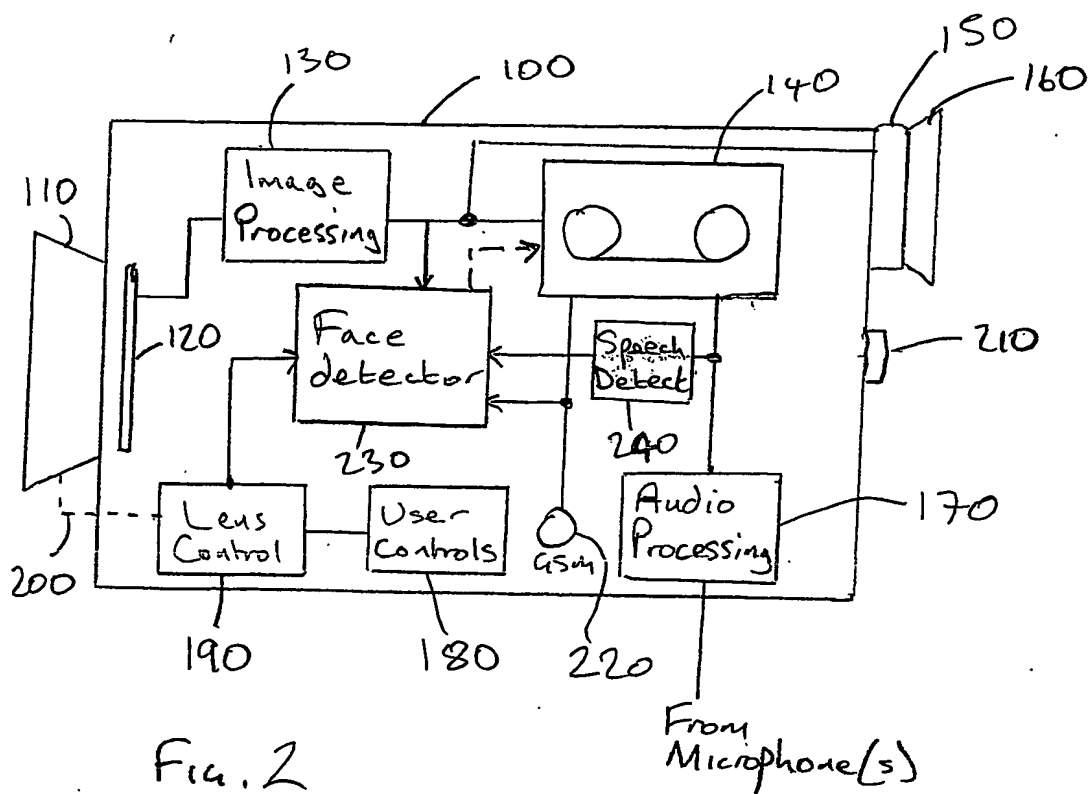 150
130
100
140
160
110
Image
Processing
120
Face
detector
Speech
Detect
210
230
240
Lens
Control
User
Controls
GSM
Audio
Processing
170
200
190
180
220
From
Microphone(s)
Fig. 2